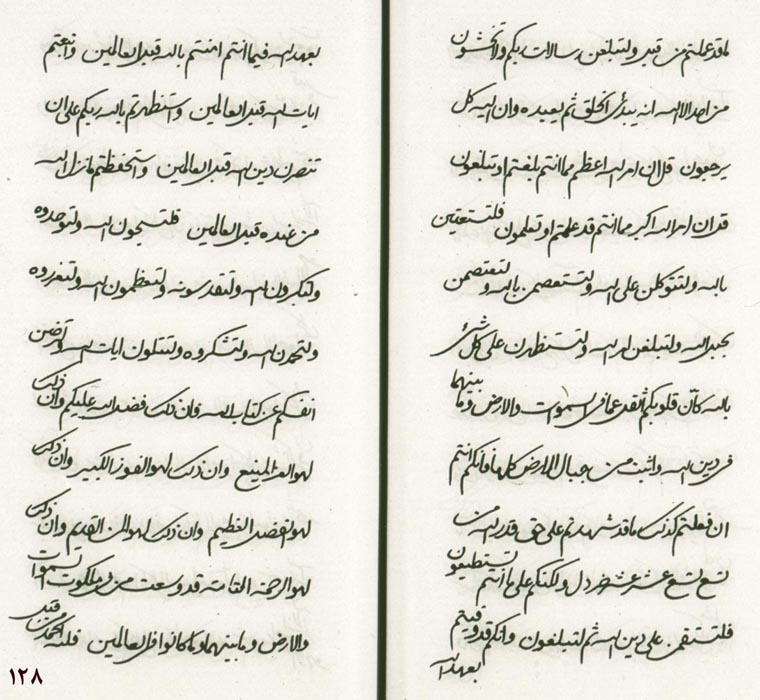 ما قد علمتم من قبل ولتبلغن رسالات ربكم ولا تخشون
من احد الا الله انه يبدئ الخلق ثم يعيده وان اليه كل
يرجعون قل ان امر الله اعظم مما انتم بلغتم او تبلغون
قل ان امر الله اكبر مما انتم قد علمتم او تعلمون فلتستعين
بالله ولتتوكلن على الله ولتستعصمن بالله ولتعتصمن
بحبل الله ولتبلغن امر الله ولتستظهرن على كل شئ
بالله كأن قلوبكم اثقل عما في السموات والارض وما بينهما
في دين الله واثبت من جبال الارض كلها فانكم انتم
ان فعلتم كذلك ما قد شهدتم على حق قدر الله من
تسع تسع عشر عشر خردل ولكنكم على ما انتم تستطيعون
فلتستقمن على دين الله ثم لتبلغون وانكم قد وفيتم
بعهد الله
بعهد الله فيما انتم امنتم بالله قبل العالمين واتبعتم
ايات الله قبل العالمين واستظهرتم بالله ربكم على ان
تنصرن دين الله قبل العالمين واستحفظتم ما نزل الله
من عنده قبل العالمين فلتسبحون الله ولتوحدوه
ولتكبرون الله ولتقدسونه ولتعظمون الله ولتفردوه
ولتحمدن الله ولتشكروه ولتتلون ايات الله وارضن
انفسكم عن كتاب الله فان ذلك فضل الله عليكم وان ذلك
لهو العز المنيع وان ذلك لهو الفوز الكبير وان ذلك
لهو الفضل العظيم وان ذلك لهو المن القديم وان ذلك
لهو الرحمة التامة قد وسعت من في ملكوت السموات
والارض وما بينهما وما كانوا في العالمين فلله الحمد من قبل
١٢٨